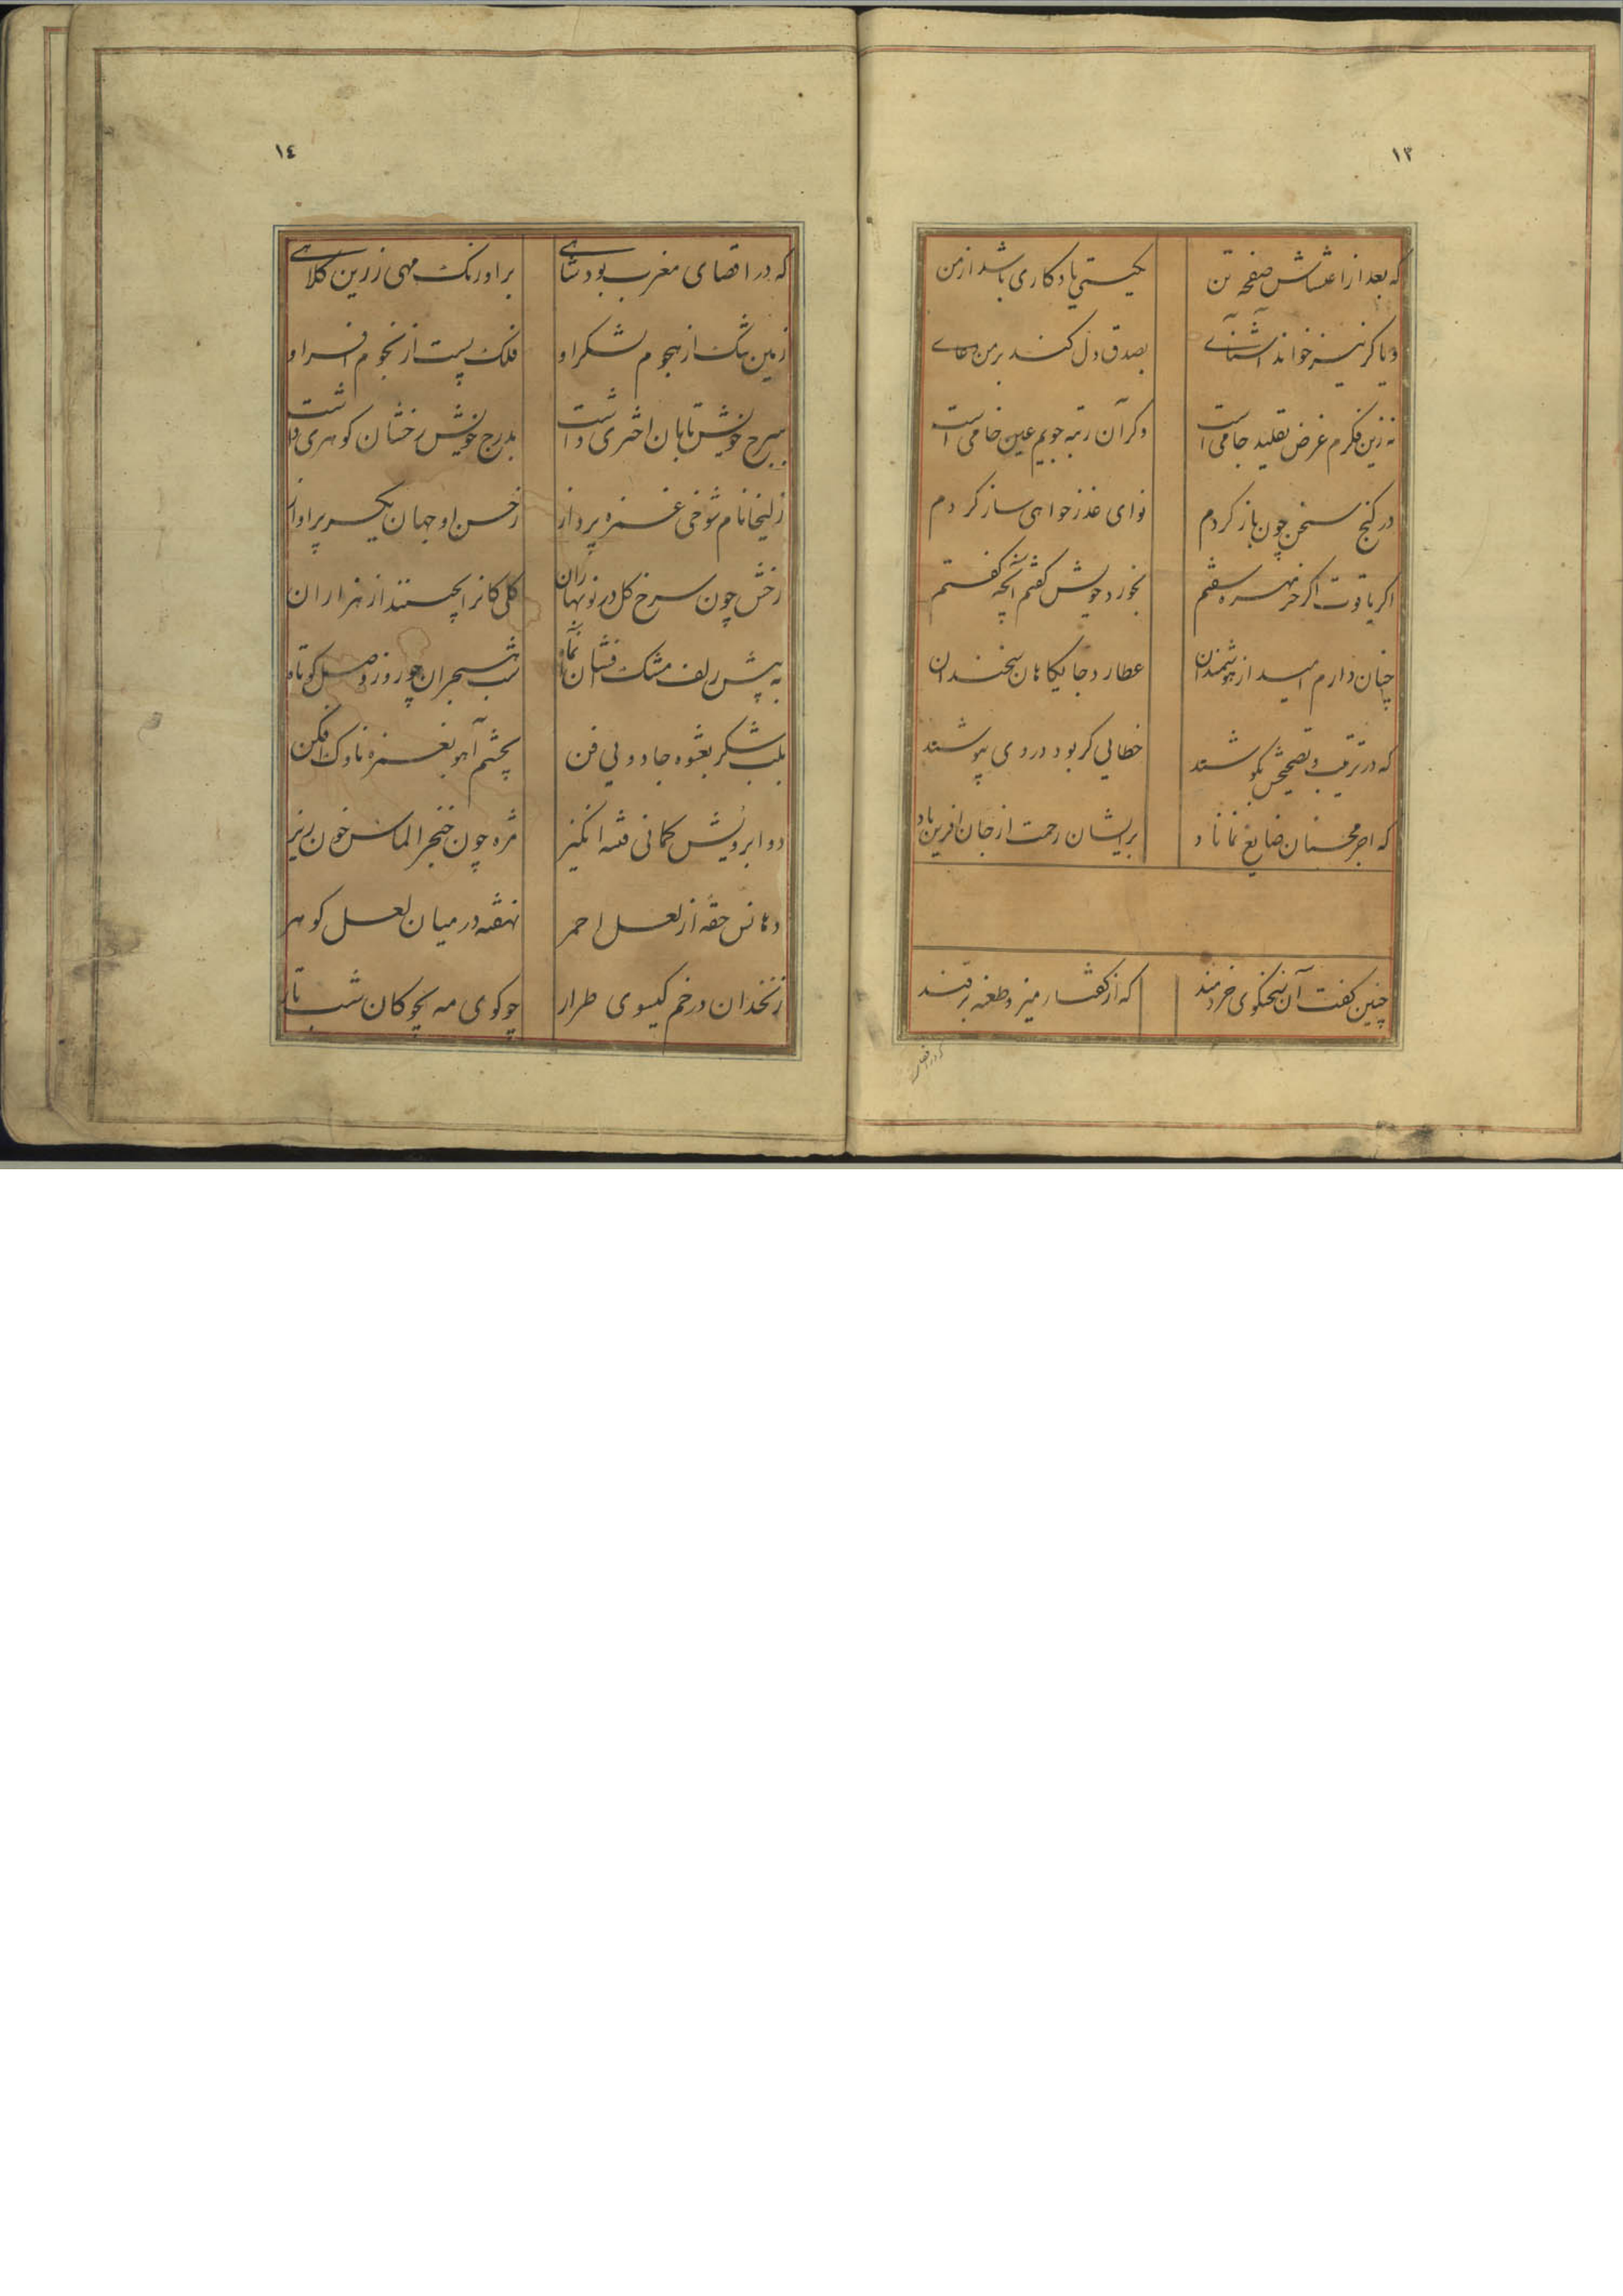 ١٣
که بعد از اغتشاش صفحه تن بکیتی یادکاری باشد از من
و یا کر نیز خواند آشنائے بصدق دل کند بر من دعاے
نه زین فکرم غرض تقلید جامی است وکر آن رتبه جویم عین خامی است
در کنج سخن چون باز کردم نوای عذر خواهی ساز کردم
اکر یاقوت اکر خرمهره سفتم بخورد خویش کفتم آنچه کفتم
چنان دارم امید از هوشمندان عطارد جایکاهان سخندان
که در ترتیب و تصحیحش بکوشند خطایی کر بود در وی بپوشند
که اجر محسنان ضایع نماناد بر ایشان رحمت از جان افرین باد
چنین کفت آن سخنکوی خردمند که از کفتار
که در اقصای
١٤
که در اقصای مغرب بود شاهے بر اورنک مهی زرین کلاهے
زمین تنک از هجوم لشکر او فلک پست از نجوم افسر او
ببرج خویش تابان اختری داشت بدرج خویش رخشان کوهری داشت
زلیخا نام شوخی غمزه پرداز ز حسن او جهان یکسر پر اواز
رخش چون سرخ کل در نوبهاران کلی کانرا بچستند از هزاران
به پیش زلف مشک افشان آنماه شب هجران چو روز وصل کوتاه
بلب شکر بعشوه جادویی فن بچشم آهو بغمزه ناوک افکن
دو ابرویش کمانی فتنه انکیز مژه چون خنجر الماس خون ریز
دهانش حقه از لعل احمر نهفته در میان لعل کوهر
زنخدان در خم کیسوی طرار چو کوی مه بچوکان شب تار